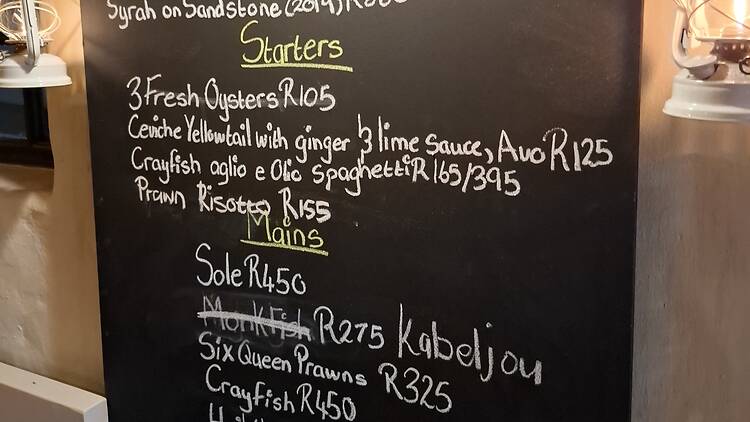 Syrah on Sandstone (2019)
Starters
3 Fresh Oysters R105
Ceviche Yellowtail with ginger & lime sauce, Avo R125
Crayfish aglio e Olio spaghetti R165/395
Prawn Risotto R155
Mains
Sole R450
Monkfish R275 Kabeljou
Six Queen Prawns R325
Crayfish R450